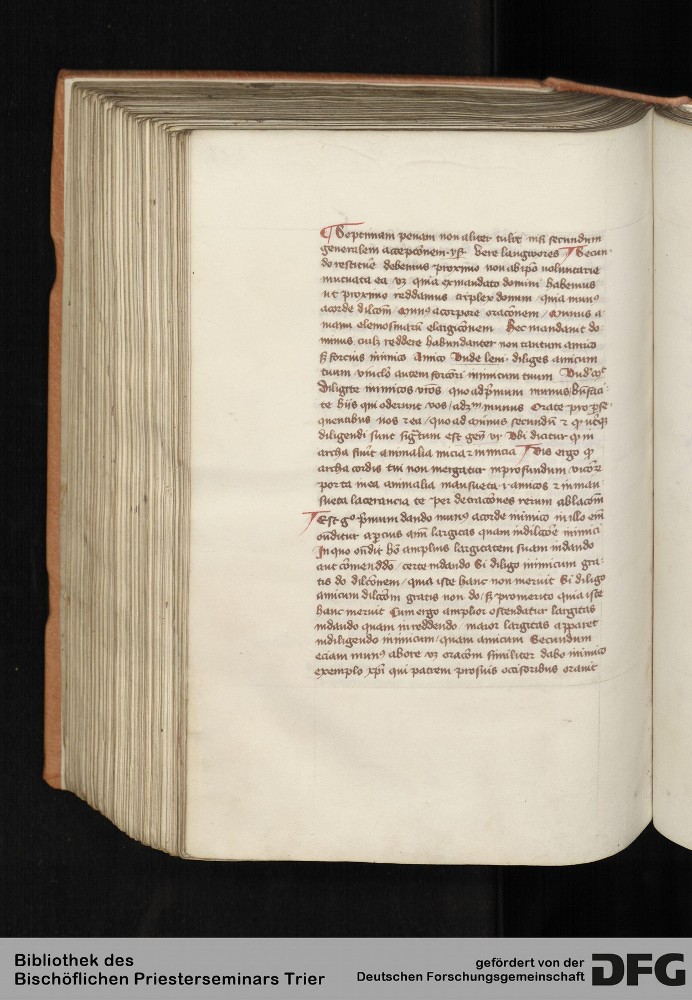 Septimam penam non aliter tulit nisi secundum
generalem accepcōnem · ys · Vere langwores Secun-
do restituē debemus proximo non ab ipō voluntarie
mutuata ea vz quia ex mandato domini habemus
ut proximo reddamus triplex donum quia munꝰ
a corde dilcōm / Munꝰ a corpore oracōnem / Munus a
manu elemosinarū elargicōnem Hec mandauit do
minus reddere habundanter non tantum amico
sꝫ forcius inimico Amico Vnde leui · diliges amicum
tuum inimicum tuum
Diligite inimicos vrōs quo ad pͥmum munus
te hijs qui oderunt vos / munus Orate pro ꝑse
quentibus vos quo ad
diligendi sunt est gen̄ vi Vbi dicitur ꝙ in
archa animalia inimica Vis ergo ꝙ
archa cordis tui non mergatur in profundum
porta in ea animalia mansueta .i. amicos ⁊ in man-
sueta te per detracōnes rerum ablacōm
Est gͦ pͥmum dando munꝰ a corde inimico in illo em̄
on̄ditur aꝑcius largitas quam in dilcōe inimici
In quo on̄dit hō amplius largitatem suam in dando
aut cōmen̄ddō / certe in dando Si diligo inimicum gra-
tis do dilcōnem / quia iste hanc non meruit Si diligo
amicum dilcōm gratis non do / sꝫ pro merito quia iste
hanc meruit Cum ergo amplior ostendatur largitas
in dando quam in reddendo maior largitas apparet
in diligendo inimicum / quam amicum Secundum
eciam munꝰ ab ore vz oracōm similiter dabo inimico
exemplo xpī qui patrem pro suis occisoribus orauit
Bibliothek des
Bischöflichen Priesterseminars Trier
gefördert von der
Deutschen Forschungsgemeinschaft
DFG